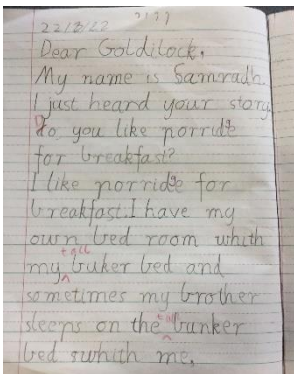 22/3/22
Dear Goldilock.
My name is Samradh.
I just heard your story.
Do you like porride
for breakfast?
I like porride for
breakfast. I have my
own bed room whith
tall
my buker bed and
sometimes my brother
sleeps on the bunker
bed swhith me.